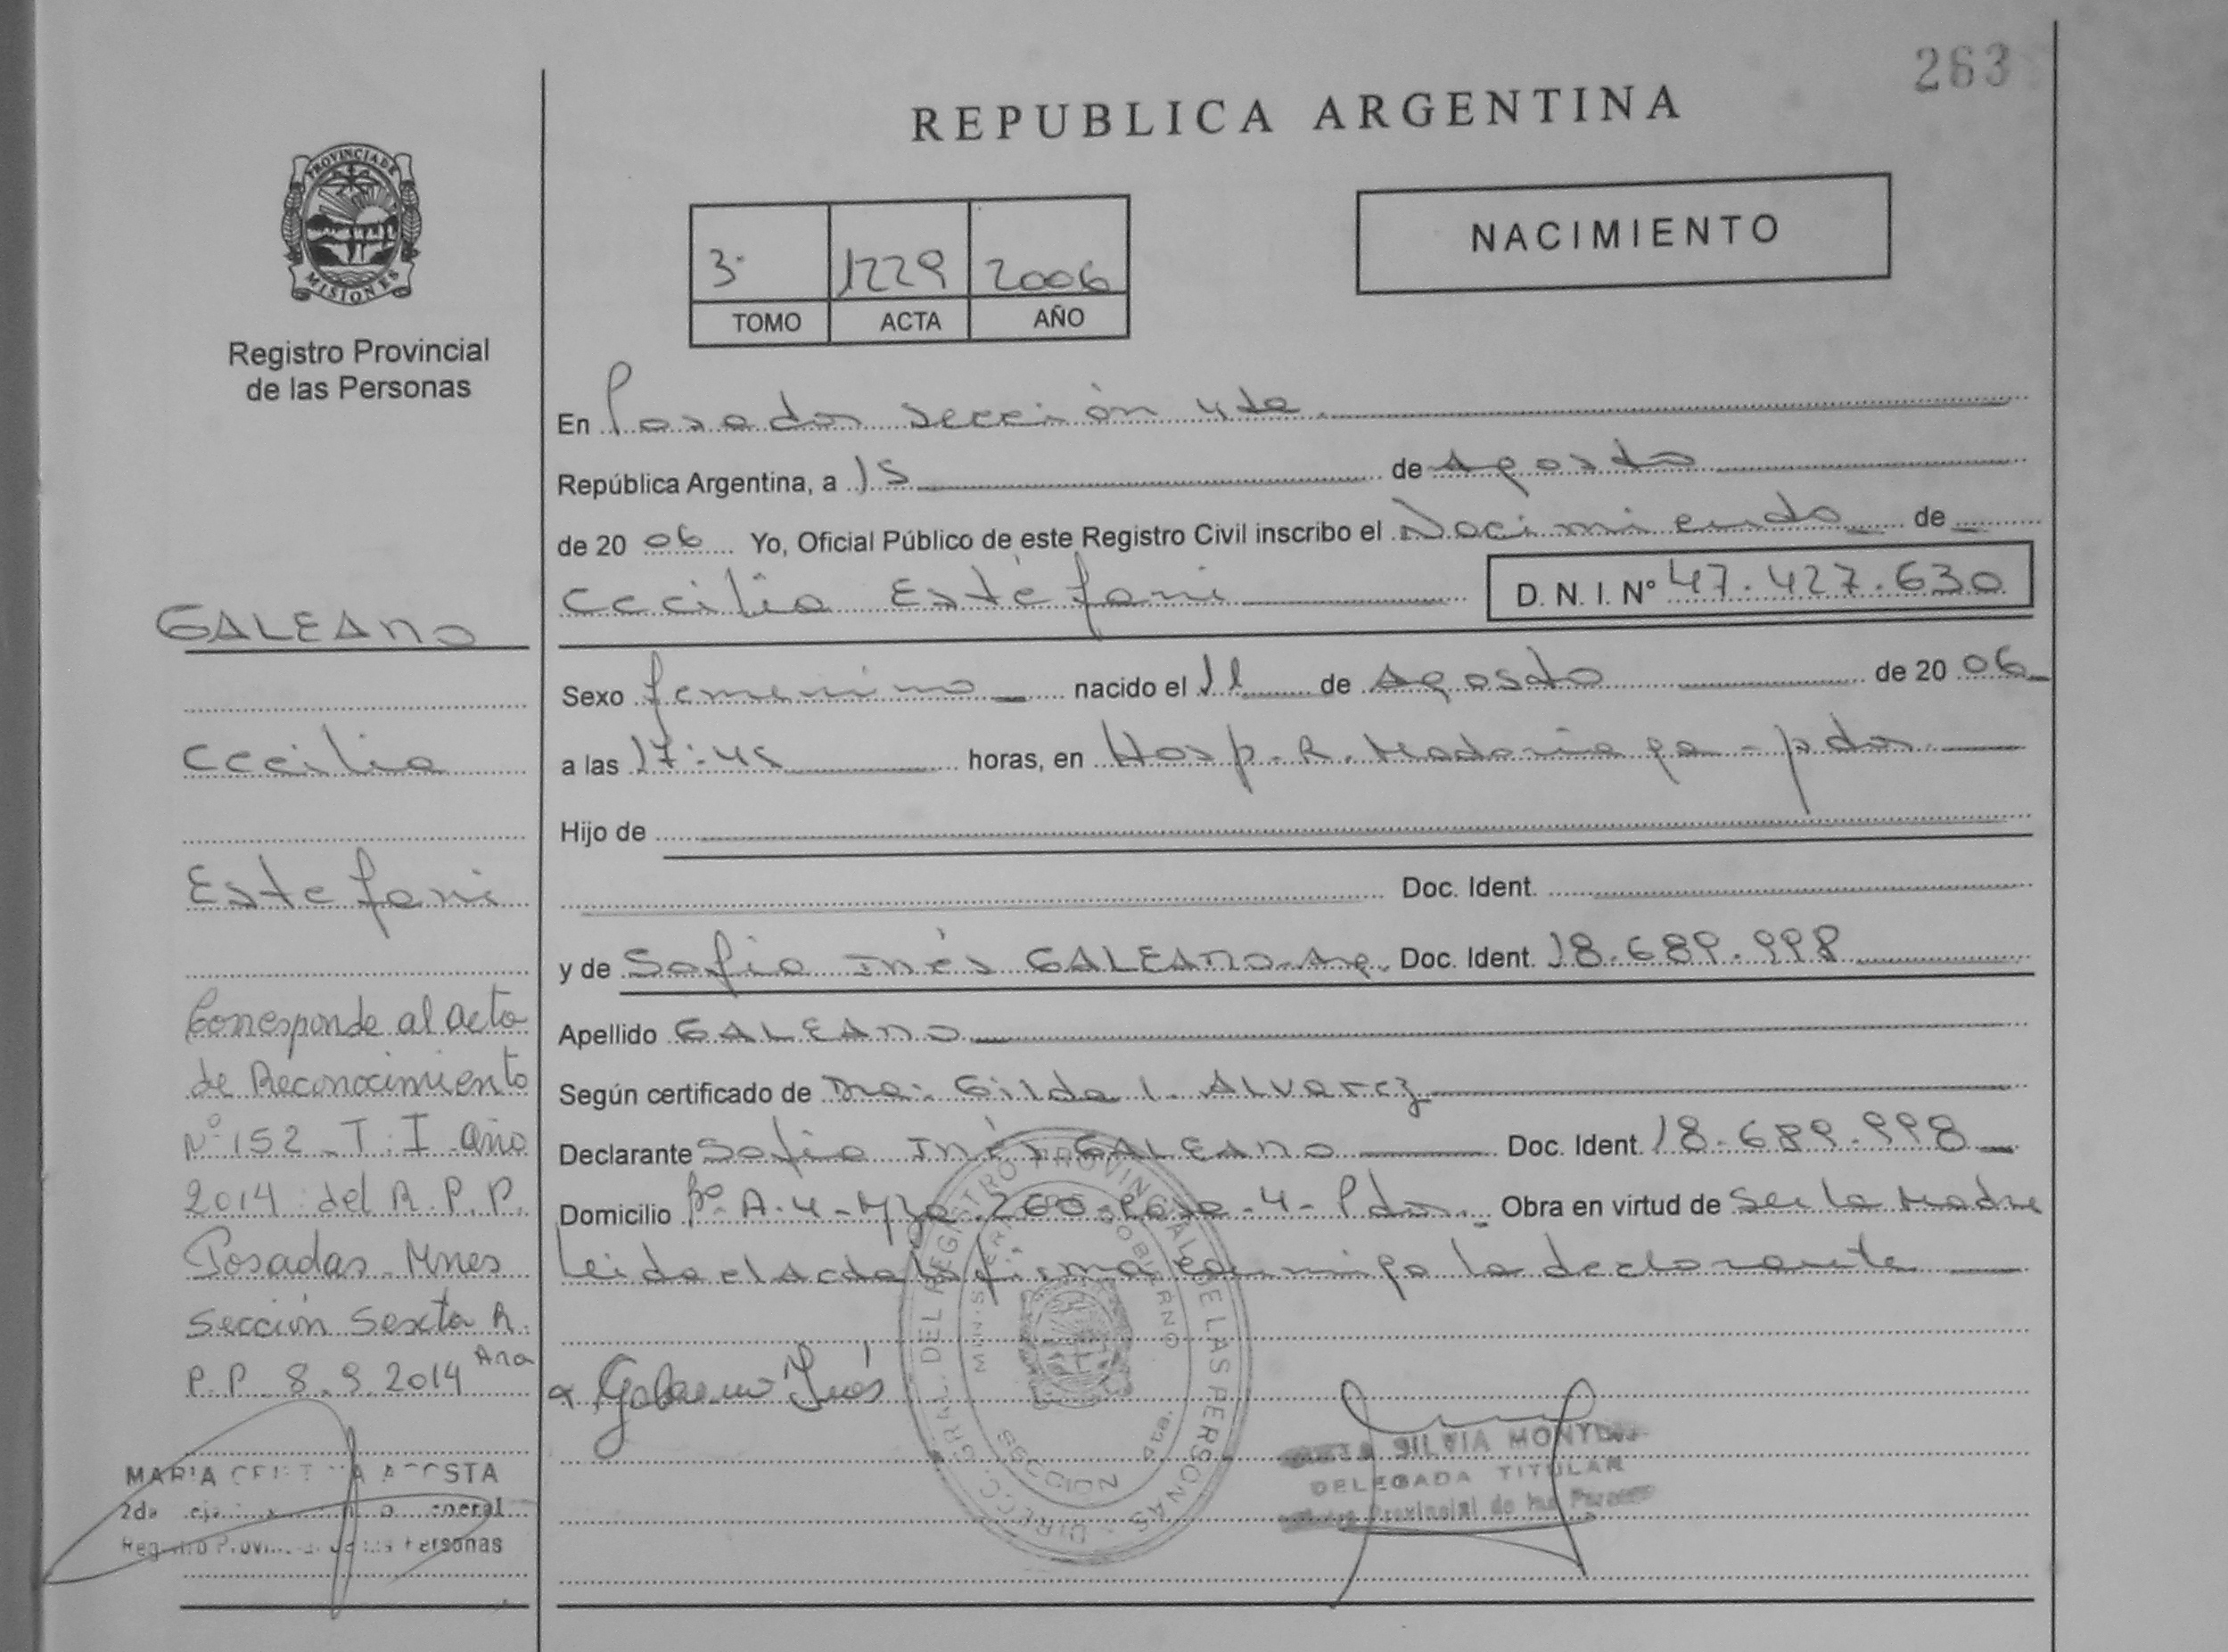 263
REPUBLICA ARGENTINA
PROVINCIA DE
MISIONES
Registro Provincial
de las Personas
NACIMIENTO
3º 1229 2006
TOMO ACTA AÑO
En Posadas sección 4ta
República Argentina, a 15 de Agosto
de 2006 Yo, Oficial Público de este Registro Civil inscribo el Nacimiento de
Cecilia Estéfani D. N. I. Nº 47.427.630
Sexo femenino nacido el 11 de Agosto de 2006
a las 17:45 horas, en Hosp. R. Madariaga - pdas.
Hijo de
Doc. Ident.
y de Sofía Inés GALEANO - Arg. Doc. Ident. 18.689.998
Apellido GALEANO
Según certificado de Dra. Gilda I. Alvarez
Declarante Sofia Inés GALEANO Doc. Ident. 18.689.998
Domicilio Bº A.4 - Mza. 260 - Casa - 4 - Pdas. Obra en virtud de Ser la Madre
Leida el Acta la firma conmigo la declarante
Galeano Inés
GALEANO
Cecilia
Estefani
Corresponde al acta
de Reconocimiento
Nº 152 - T: I año
2014 del R.P.P.
Posadas Mnes
Sección Sexta R.
P.P. 8.9.2014
MARIA ACOSTA
2da
Registro Personas
DIRECC. GRAL. DEL REGISTRO PROVINCIAL DE LAS PERSONAS
MINISTERIO DE GOBIERNO
SECCION 4ta.
SILVIA
DELEGADA TITULAR
Provincial de las Personas